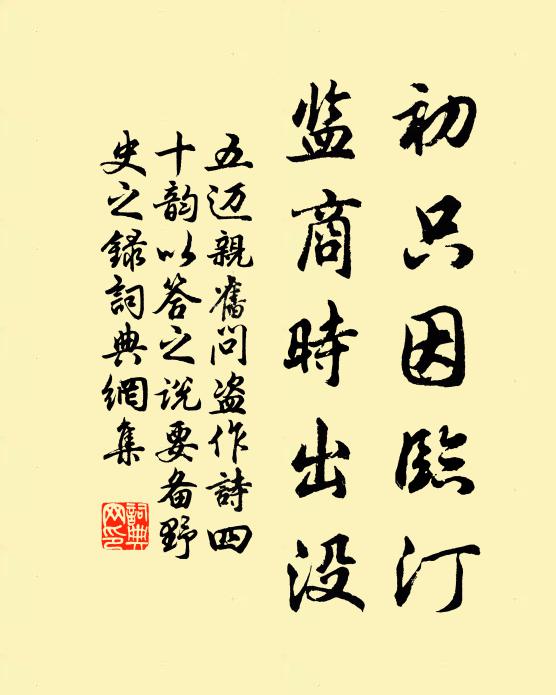 初只因臨汀
监商時出没
五迈親舊问盗作詩四
十韵以答之说要备野
史之録詞典網集
詞典网印